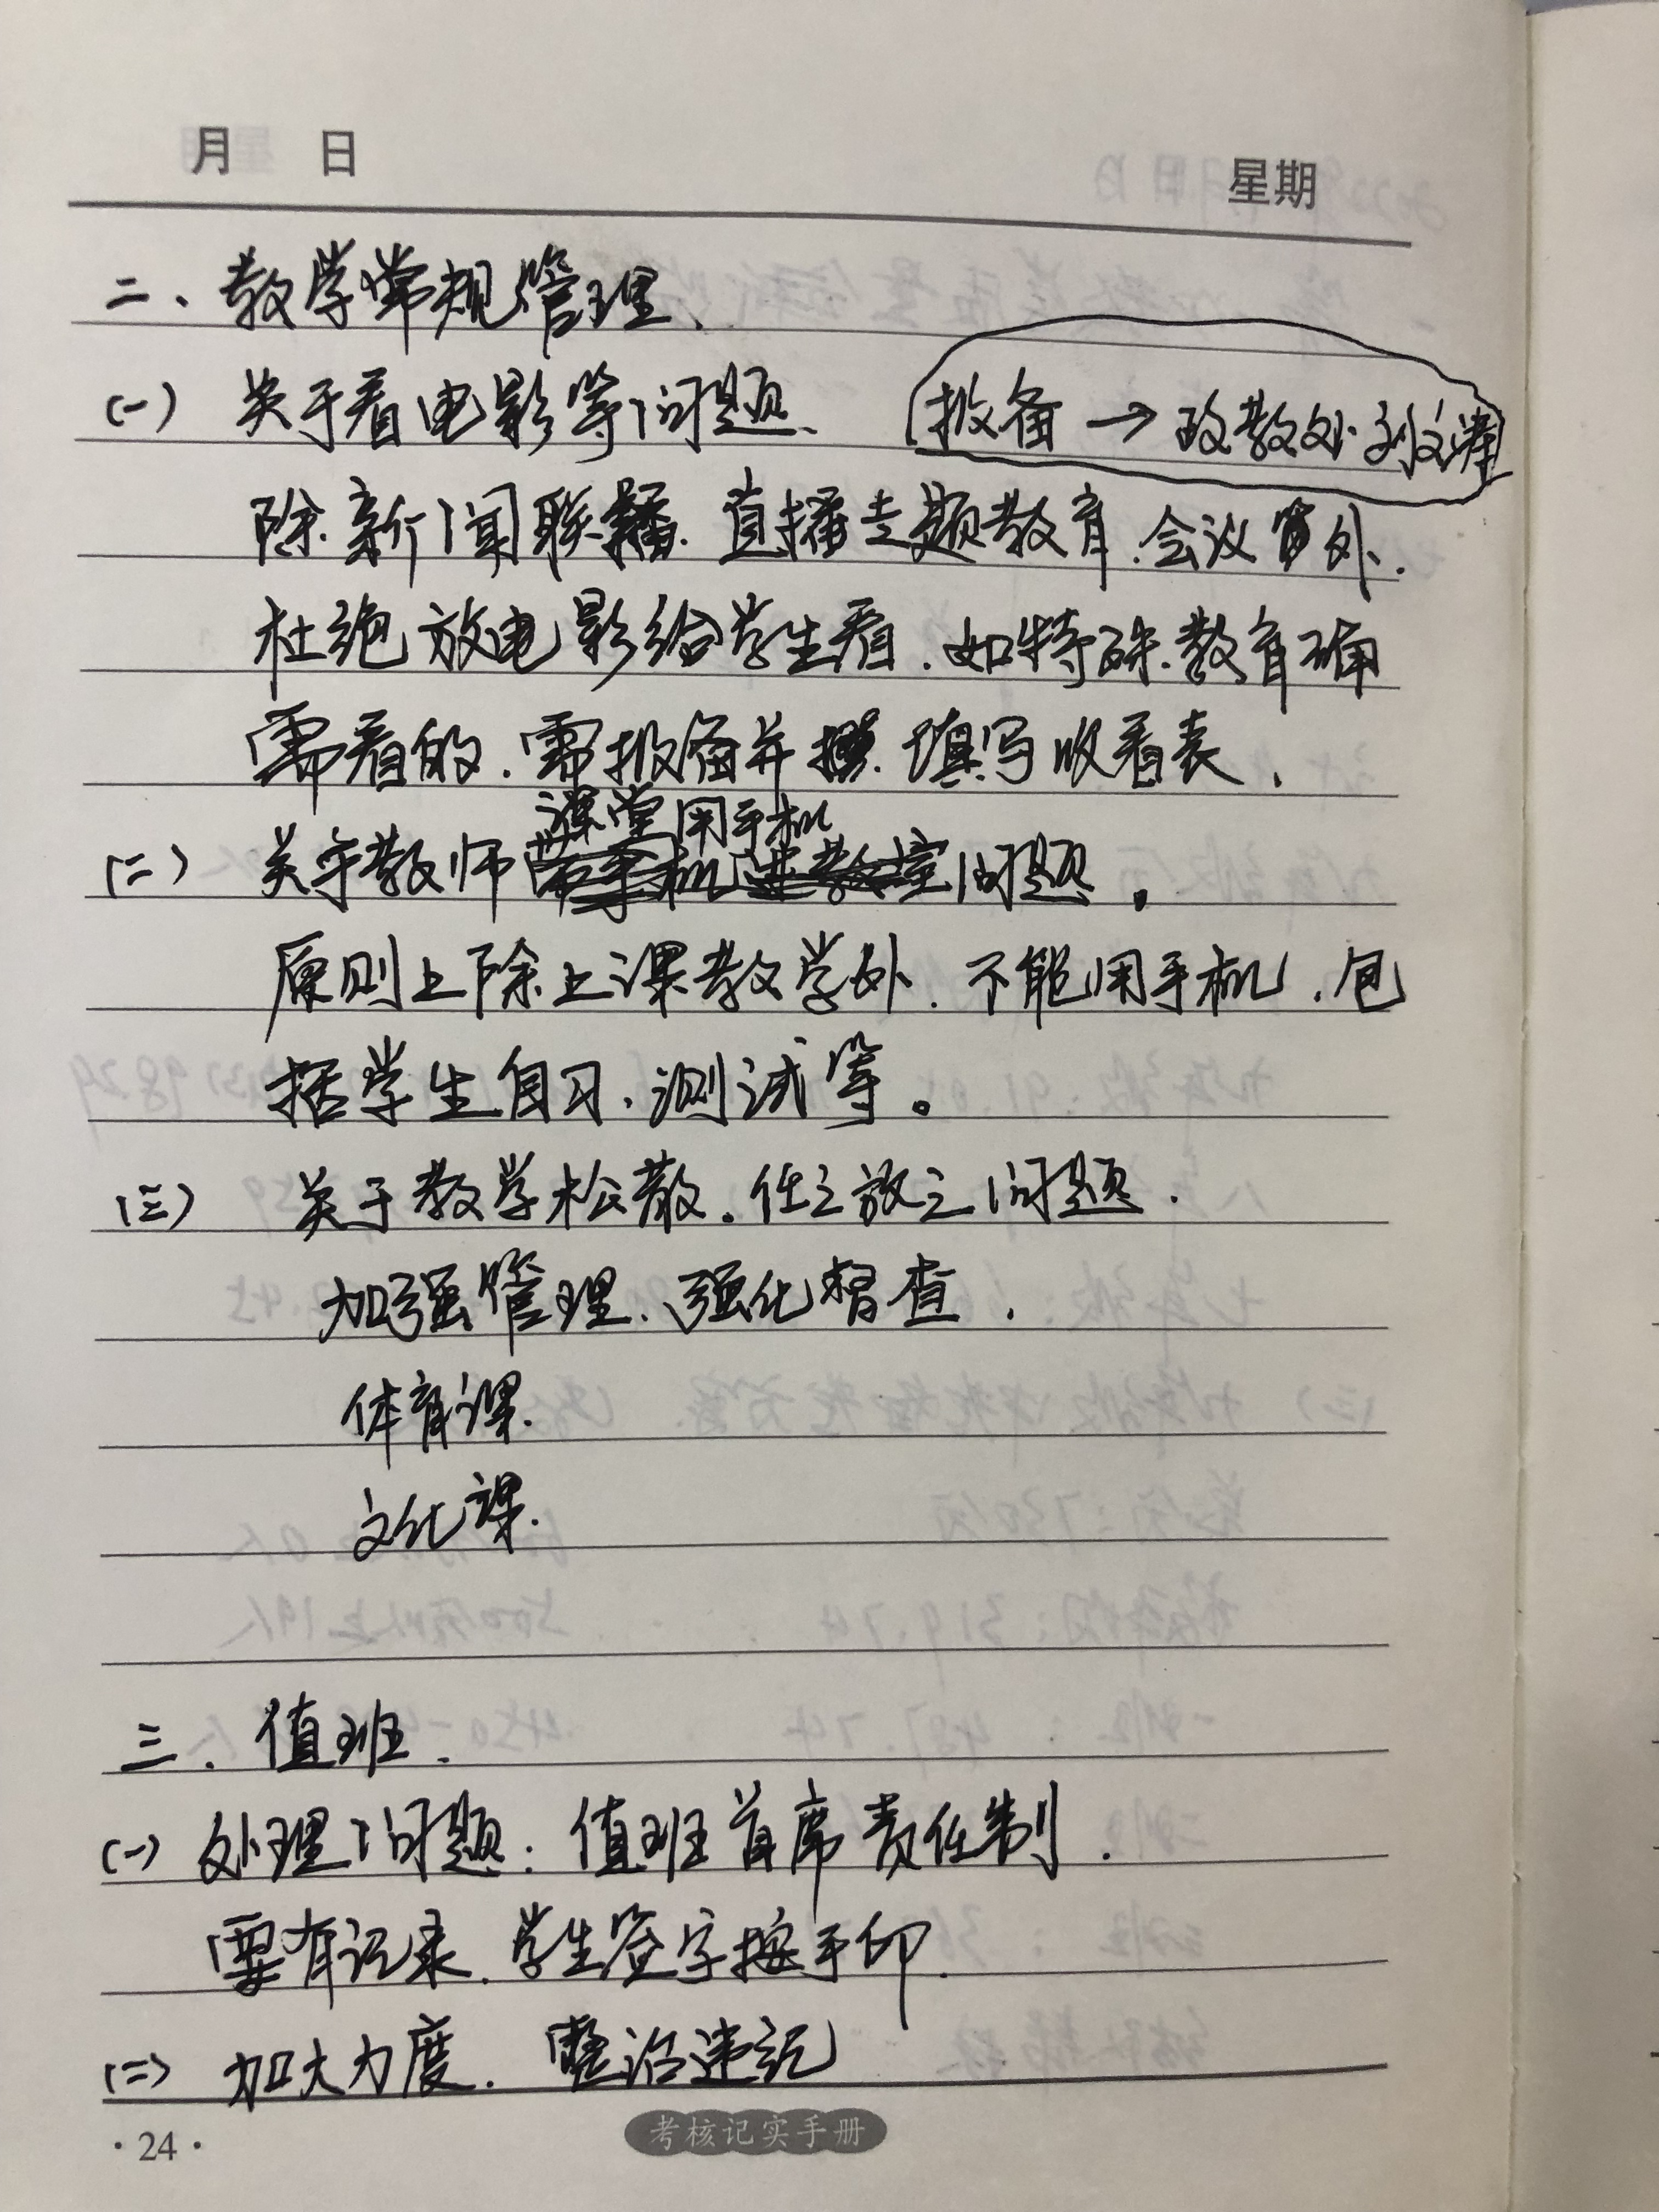 月 日 星期
二、教学常规管理、
(一) 关于看电影等问题、 报备→政教处
除新闻联播、直播专题教育、会议 外、
杜绝放电影给学生看、如特殊教育确
需看的、需报备并 填写收看表、
课堂用手机
(二) 关于教师 问题。
原则上除上课教学外、不能用手机、包
括学生自习、测试等。
(三) 关于教学松散、任之放之问题、
加强管理、强化督查、
体育课、
文化课、
三、值班、
(一) 处理问题:值班首席责任制、
要有记录、学生签字按手印、
(二) 加大力度、整治违纪
·24· 考核记实手册